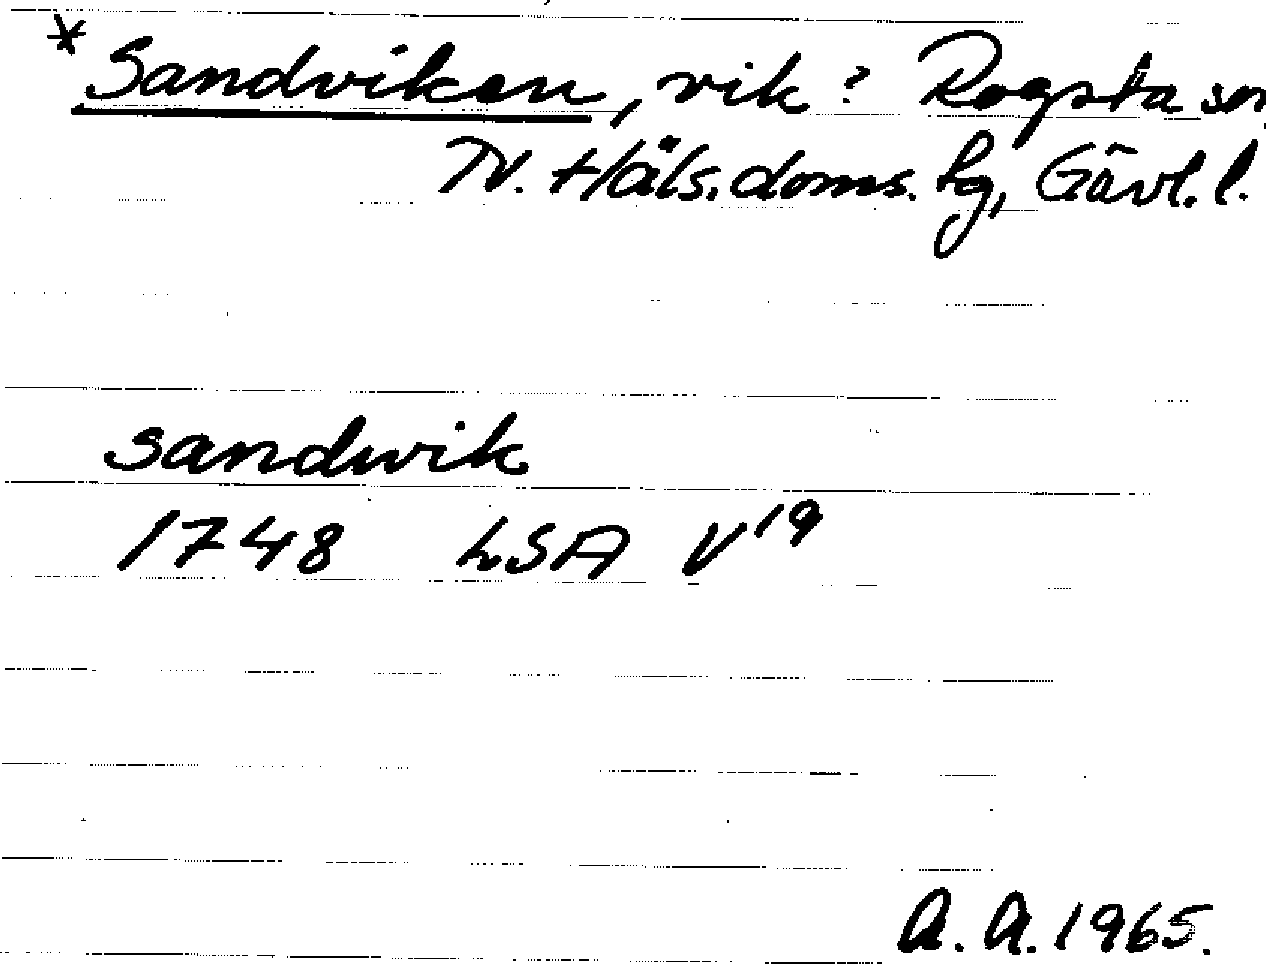 * Sandviken, vik? Rogsta sn,
N. Häls. doms. fg, Gävl. l.
sandwik
1748 LSA V19
A. A. 1965.